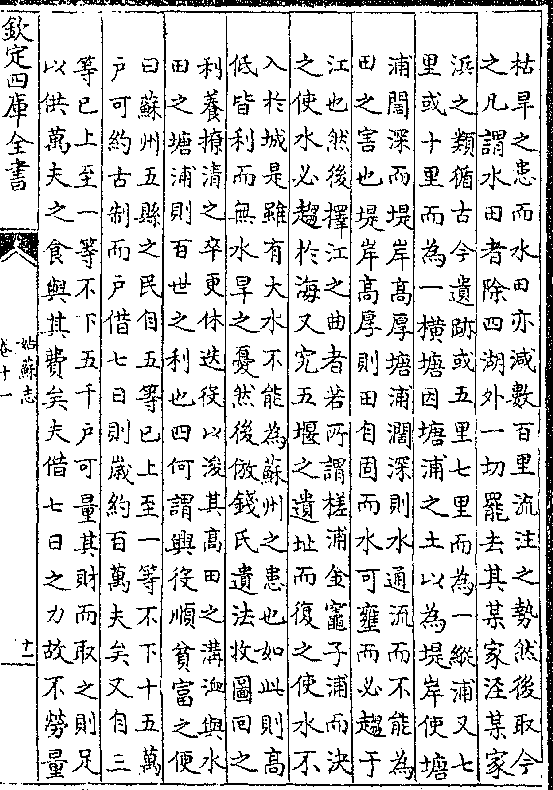 枯旱之患而水田亦減數百里流注之勢然後取今
之凡謂水田者除四湖外一切罷去其某家涇某家
浜之類循古今遺跡或五里七里而為一縱浦又七
里或十里而為一橫塘因塘浦之土以為堤岸使塘
浦闊深而堤岸高厚塘浦濶深則水通流而不能為
田之害也堤岸高厚則田自固而水可壅而必趨于
江也然後擇江之曲者若所謂槎浦金竈子浦而決
之使水必趨於海又究五堰之遺址而復之使水不
入於城是雖有大水不能為蘇州之患也如此則高
低皆利而無水旱之憂然後倣錢氏遺法收圖回之
利養撩清之卒更休迭役以浚其高田之溝洫與水
田之塘浦則百世之利也四何謂興役順貧富之便
曰蘇州五縣之民自五等已上至一等不下十五萬
户可約古制而户借七日則歲約百萬夫矣又自三
等已上至一等不下五千户可量其財而取之則足
以供萬夫之食與其費矣夫借七日之力故不勞量
欽定四庫全書
姑蘇志
卷十一
十一